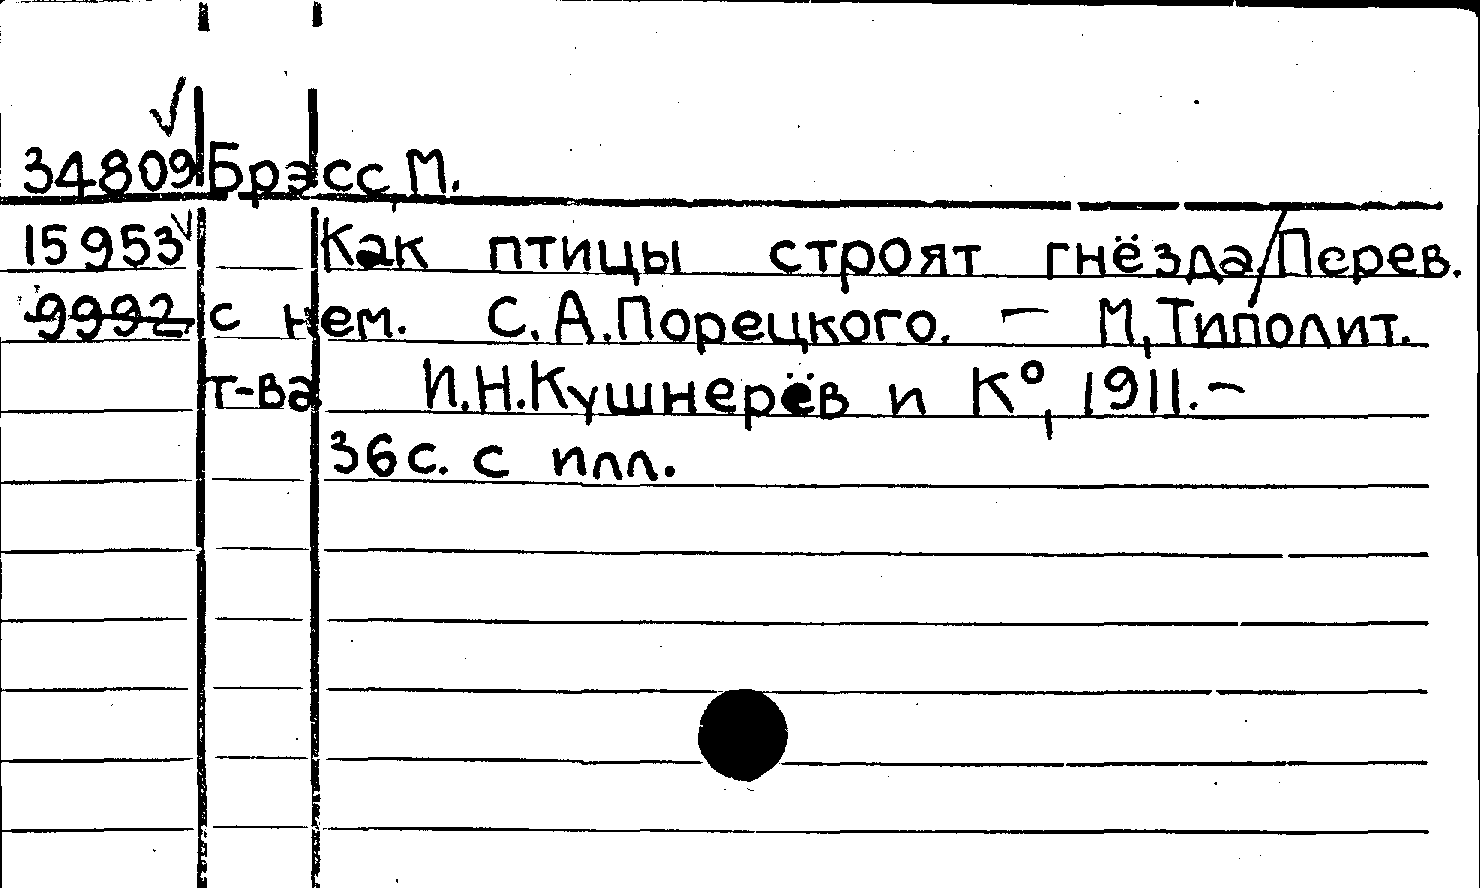 34809 Брэсс, М.
15953 Как птицы строят гнёзда/Перев.
9992 с нем. С.А.Порецкого. — М, Типолит.
т-ва И.Н.Кушнерёв и К°, 1911.—
36с. с илл.